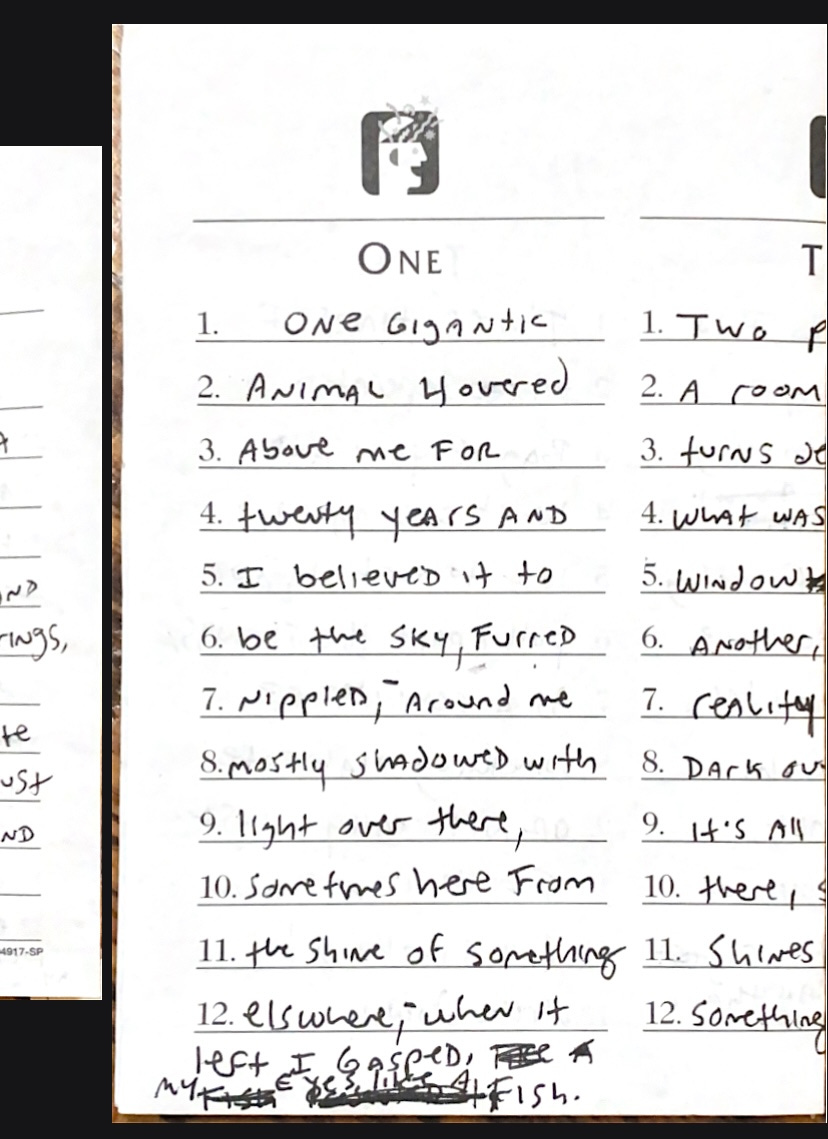 A
AND
rings,
te
ust
ND
4917-SP
ONE
1. ONE GigANtic
2. ANIMAL Hovered
3. Above me FOR
4. twenty yeArs AND
5. I believeD it to
6. be the SKY, FurreD
7. NippleD, Around me
8. mostly shADoweD with
9. light over there,
10. Sometimes here From
11. the Shine of something
12. elswhere, when it
left I GASpeD, A
my Eyes like A Fish.
T
1. Two P
2. A room
3. turns de
4. WhAt WAS
5. WINDOW
6. ANother,
7. reALity
8. DArk ou
9. It's All
10. there, s
11. Shines
12. Something